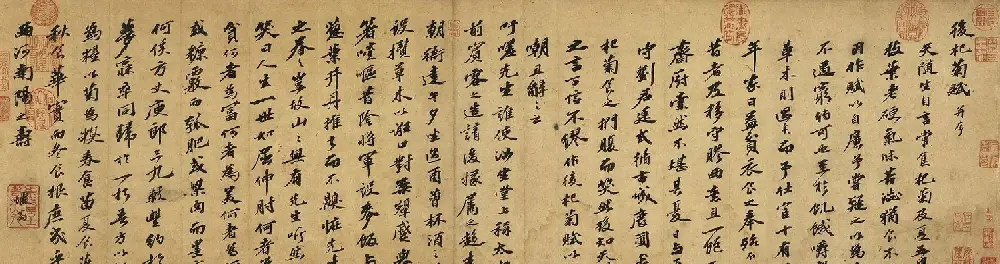 後杞菊賦 并序
天隨生自言常食杞菊及夏五
枝葉老硬氣味苦澁猶食不
因作賦以自廣予嘗疑之以為
不遇窮約可也至於飢餓嚼
草木則過矣而予仕宦十有
年家日益貧衣食之奉殆
昔者及移守膠西意且一飽
齋厨索然不堪其憂日与
守劉君廷式循古城廢圃
杞菊食之捫腹而笑然後知天
之言可信不繆作後杞菊賦以
嘲且解之云
吁嗟先生誰使汝坐堂上稱太
前賓客之造請後掾屬之趨
朝衙達午夕坐過酉曾杯酒
設攬草木以誑口對案顰蹙舉
箸噎嘔昔陰將軍設麥飯
葱葉井丹推去而不嗅恠先
之眷眷豈故山之無有先生听然
笑曰人生一世如屈伸肘何者
貧何者為富何者為美何者為
或糠覈而瓠肥或粱肉而墨
何侯方丈庾郎三九較豐約於
夢寐卒同歸於一朽吾方以
為糧以菊為糗春食苗夏食
秋食華實而冬食根庶幾乎
西河南陽之壽